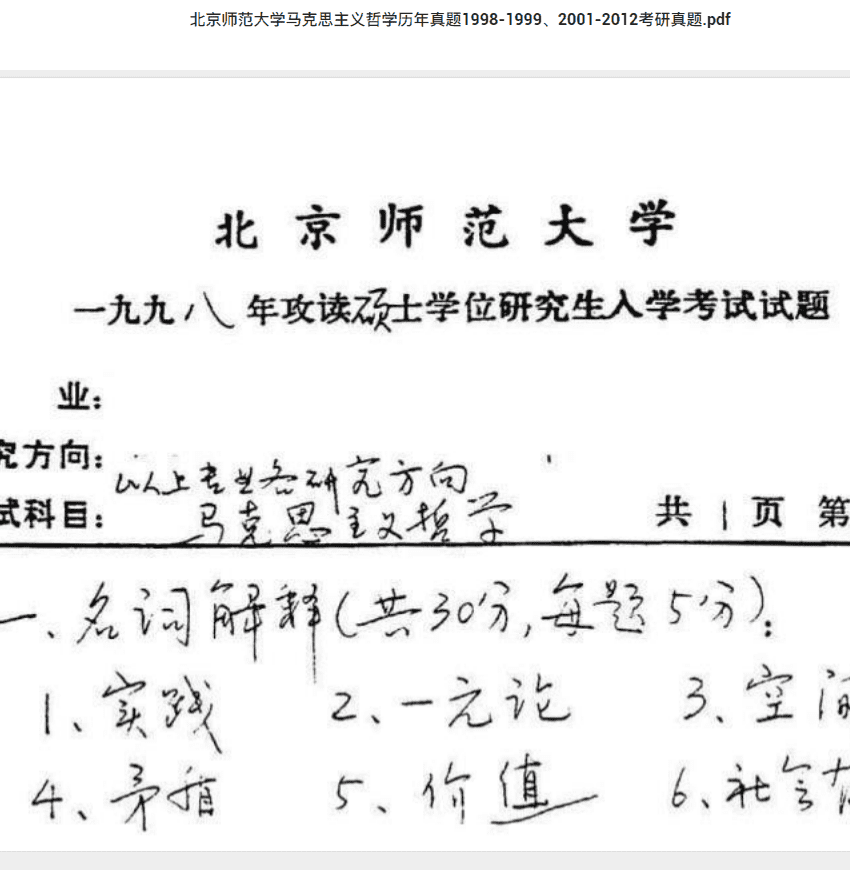 北京师范大学马克思主义哲学历年真题1998-1999、2001-2012考研真题.pdf
北京师范大学
一九九八年攻读硕士学位研究生入学考试试题
业：
究方向：以上专业各研究方向
试科目：马克思主义哲学 共1页 第
一、名词解释(共30分,每题5分)：
1、实践 2、一元论 3、空间
4、矛盾 5、价值 6、社会